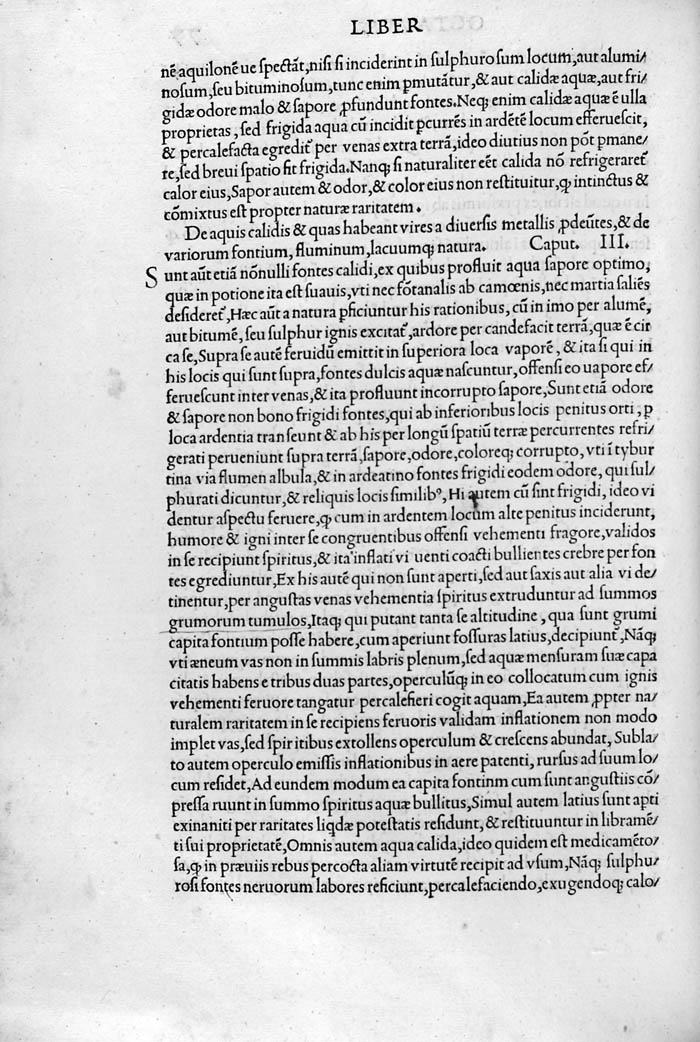 LIBER
nē aquilonē ue ſpectāt, niſi ſi inciderint in ſulphuroſum locum, aut alumi/
noſum, ſeu bituminoſum, tunc enim ꝑmutātur, & aut calidæ aquæ, aut fri/
gidæ odore malo & ſapore ꝓfundunt fontes. Neqꝫ enim calidæ aquæ ē ulla
proprietas, ſed frigida aqua cū incidit ꝑcurrēs in ardētē locum efferueſcit,
& percalefacta egredit̃ per venas extra terrā, ideo diutius non pōt ꝑmane/
re, ſed breui ſpatio fit frigida. Nanqꝫ ſi naturaliter eēt calida nō refrigeraret̃
calor eius, Sapor autem & odor, & color eius non reſtituitur, ꝙ intinctus &
cōmixtus eſt propter naturæ raritatem.
De aquis calidis & quas habeant vires a diuerſis metallis ꝓdeūtes, & de
variorum fontium, fluminum, lacuumqꝫ natura. Caput. III.
Sunt aūt etiā nōnulli fontes calidi, ex quibus profluit aqua ſapore optimo,
quæ in potione ita eſt ſuauis, vti nec fōtanalis ab camœnis, nec martia ſaliēs
deſideret̃, Hæc aūt a natura ꝑficiuntur his rationibus, cū in imo per alumē,
aut bitumē, ſeu ſulphur ignis excitat̃, ardore per candefacit terrā, quæ ē cir
ca ſe, Supra ſe autē feruidū emittit in ſuperiora loca vaporē, & ita ſi qui in
his locis qui ſunt ſupra, fontes dulcis aquæ naſcuntur, offenſi eo uapore ef/
ferueſcunt inter venas, & ita profluunt incorrupto ſapore, Sunt etiā odore
& ſapore non bono frigidi fontes, qui ab inferioribus locis penitus orti, ꝑ
loca ardentia tranſeunt & ab his per longū ſpatiū terræ percurrentes refri/
gerati perueniunt ſupra terrā, ſapore, odore, coloreqꝫ corrupto, vti ī tybur
tina via flumen albula, & in ardeatino fontes frigidi eodem odore, qui ſul/
phurati dicuntur, & reliquis locis ſimilibꝰ, Hi autem cū ſint frigidi, ideo vi
dentur aſpectu feruere, ꝙ cum in ardentem locum alte penitus inciderunt,
humore & igni inter ſe congruentibus offenſi vehementi fragore, validos
in ſe recipiunt ſpiritus, & ita inflati vi uenti coacti bullientes crebre per fon
tes egrediuntur, Ex his autē qui non ſunt aperti, ſed aut ſaxis aut alia vi de/
tinentur, per anguſtas venas vehementia ſpiritus extruduntur ad ſummos
grumorum tumulos, Itaqꝫ qui putant tanta ſe altitudine, qua ſunt grumi
capita fontium poſſe habere, cum aperiunt foſſuras latius, decipiunt̃, Nāqꝫ
vti æneum vas non in ſummis labris plenum, ſed aquæ menſuram ſuæ capa
citatis habens e tribus duas partes, operculūqꝫ in eo collocatum cum ignis
vehementi feruore tangatur percalefieri cogit aquam, Ea autem ꝓpter na/
turalem raritatem in ſe recipiens feruoris validam inflationem non modo
implet vas, ſed ſpiritibus extollens operculum & creſcens abundat, Subla/
to autem operculo emiſſis inflationibus in aere patenti, rurſus ad ſuum lo/
cum reſidet, Ad eundem modum ea capita fontinm cum ſunt anguſtiis cō/
preſſa ruunt in ſummo ſpiritus aquæ bullitus, Simul autem latius ſunt apti
exinaniti per raritates liqdæ poteſtatis reſidunt, & reſtituuntur in libramē/
ti ſui proprietatē, Omnis autem aqua calida, ideo quidem eſt medicamēto/
ſa, ꝙ in præuiis rebus percocta aliam virtutē recipit ad vſum, Nāqꝫ ſulphu/
roſi fontes neruorum labores reficiunt, percalefaciendo, exugendoqꝫ calo/